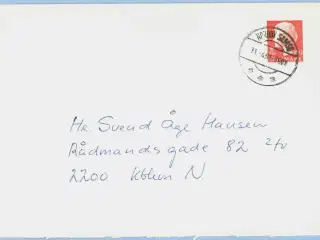 Hr. Svend Åge Hansen
Rådmandsgade 82 2/tv
2200 Kbhvn N